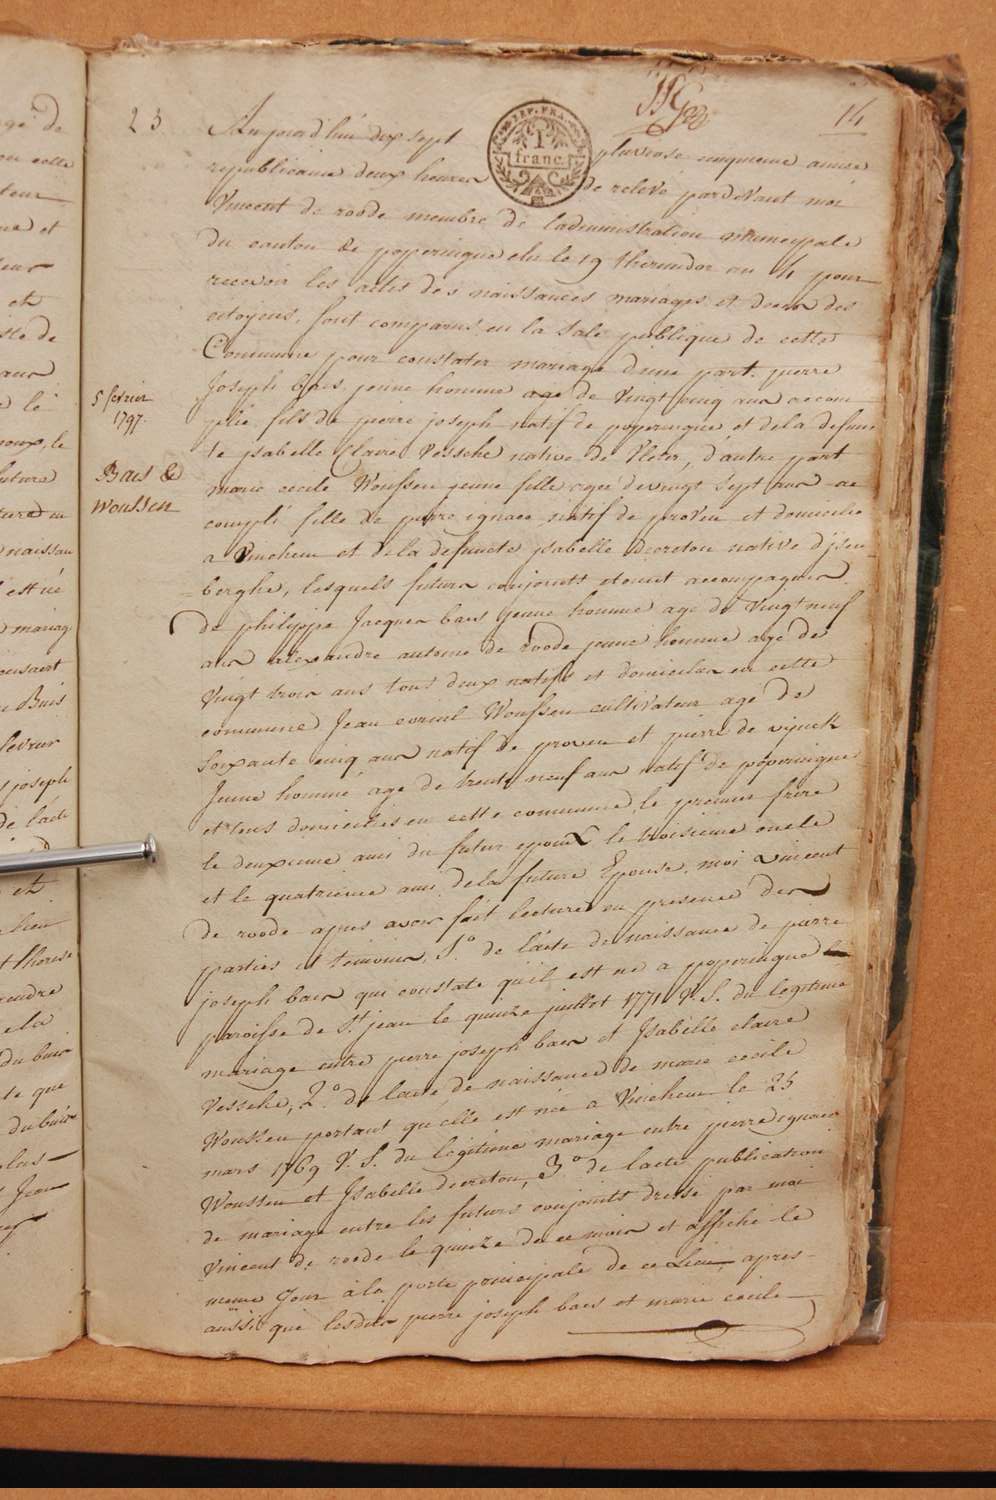 23
14
REP. FRA.
1
franc.
Aujourd'hui dix sept pluviose cinquieme année
republicaine deux heures de relevé pardevant moi
Vincent de roode membre de ladministration municipale
du canton de poperingue elu le 19 thermidor an 4 pour
recevoir les actes des naissances mariages et deces des
citoyens, sont comparus en la sale publique de cette
Commune pour constater mariage d'une part pierre
Joseph baes jeune homme age de vingt cinq ans accom-
5 fevrier
1797.
plie fils de pierre joseph natif de poperingue et de la defunc
te ysabelle Claire Vesseke native de Vleter, d'autre part
Baes &
Woussen
marie cecile Woussen jeune fille agée de vingt sept ans ac
compli fille de pierre ignace natif de proven et domicilié
a Vinchem et de la defuncte ysabelle decreton native d'jsen-
=berghe, lesquels futurs conjoints etoient accompagnes
de philippe Jacques baes jeune homme age de vingt neuf
ans alexandre antoine de roode jeune homme age de
vingt trois ans tous deux natifs et domicilies en cette
commune Jean Woussen cultivateur age de
soixante cinq ans natif de proven et pierre de vijnck
Jeune homme age de trente neuf ans natif de poperingue
et tous domiciliés en cette commune, le premier frère
le deuxieme ami du futur epoux le troisieme oncle
et le quatrieme ami de la future Epouse, moi vincent
de roode apres avoir fait lecture en presence des
parties et temoins, 1.° de lacte de naissance de pierre
joseph baes qui constate qu'il est né a poperingue
paroisse de St. jean le quinze juillet 1771 V. S. du legitime
mariage entre pierre joseph baes et Isabelle claire
Vesseke, 2.° de lacte de naissance de marie cecile
Woussen portant qu'elle est née a Vinchem le 25
mars 1769 V. S. du legitime mariage entre pierre ignace
Woussen et Isabelle decreton, 3.° de lacte publication
de mariage entre les futurs conjoints dressé par moi
Vincent de roode le quinze de ce mois et affiché le
meme Jour à la porte principale de ce Lieu, apres-
aussi que lesdits pierre joseph baes et marie cecile